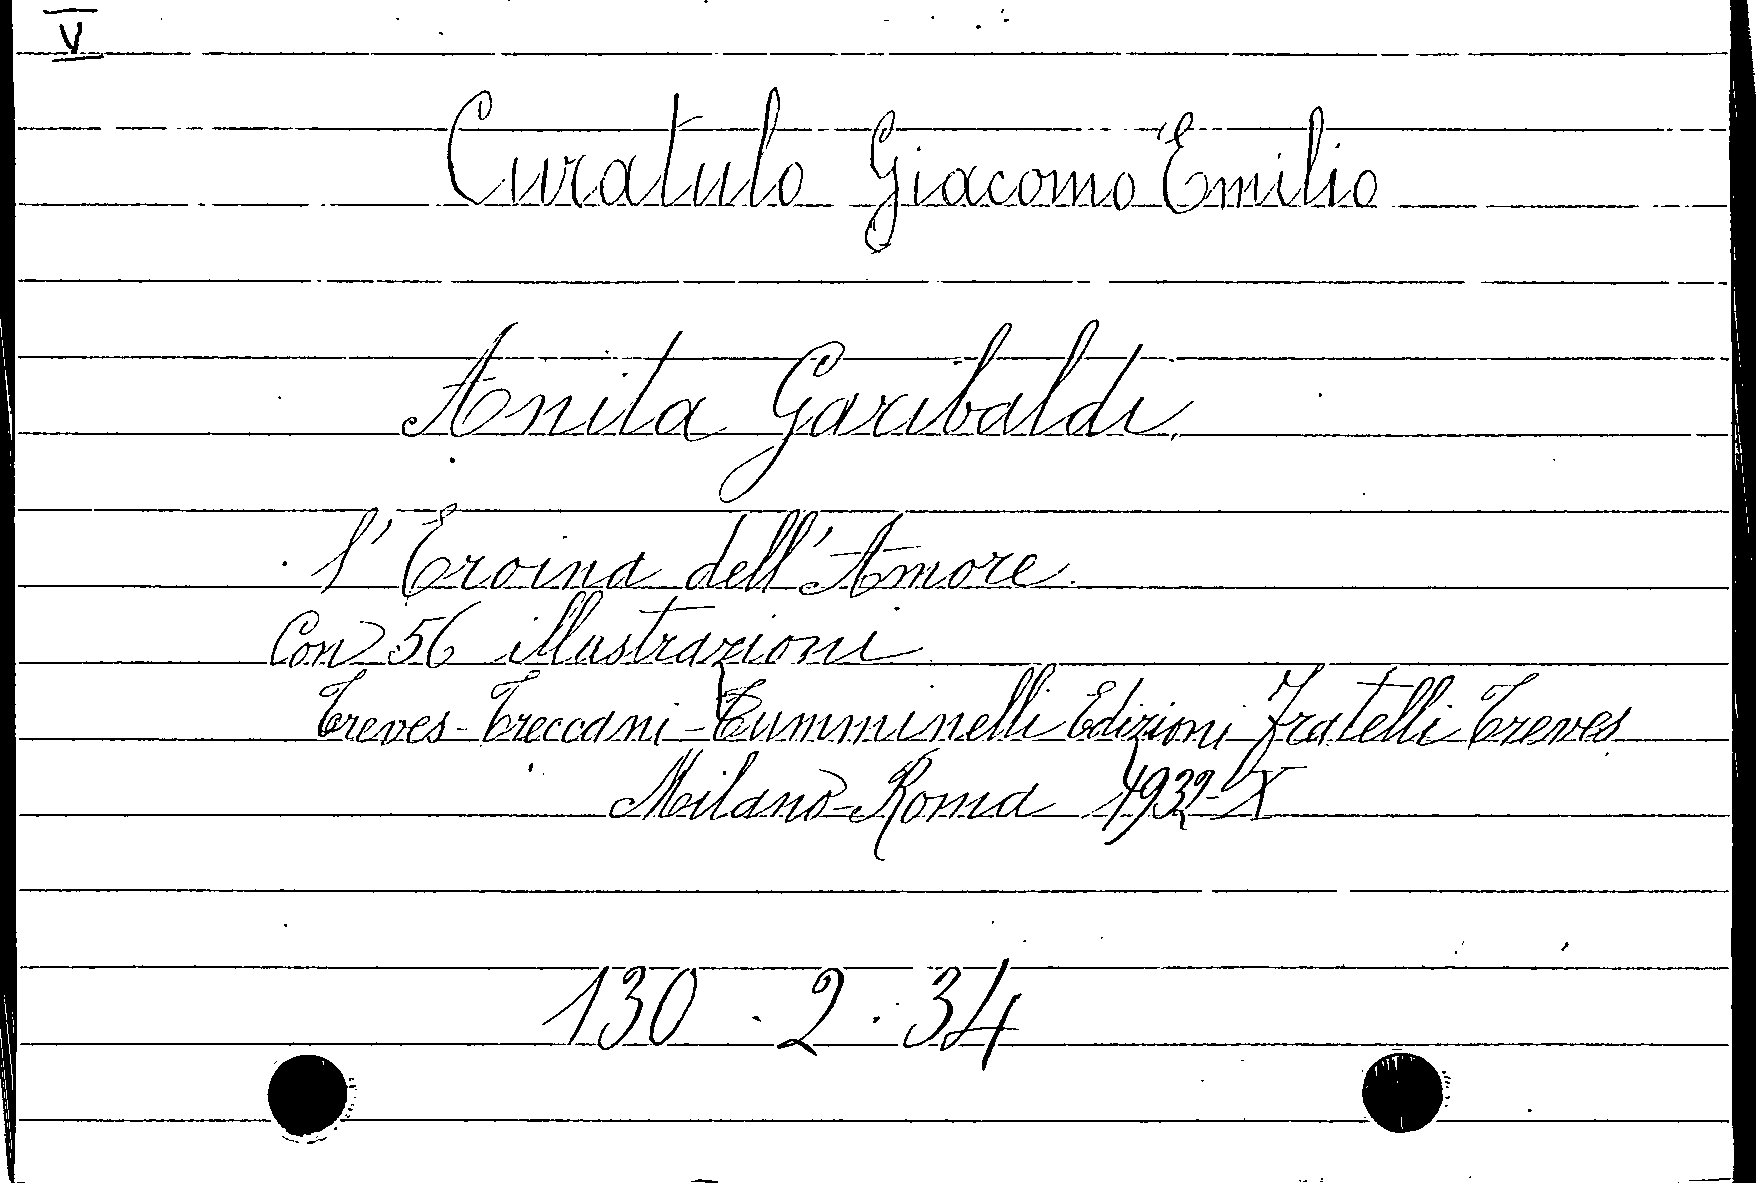 V
Curatulo Giacomo Emilio
Anita Garibaldi.
l'Eroina dell'Amore.
Con 56 illustrazioni
Treves-Treccani-Tumminelli Edizioni Fratelli Treves
Milano-Roma 1932-X
130 . 2 . 34